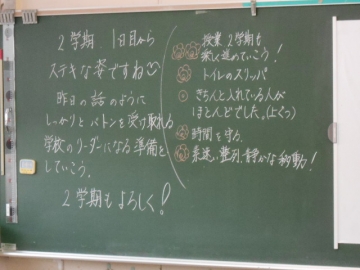 2学期、1日目から
ステキな姿ですね
昨日の話のように
しっかりとバトンを受け取れる
学校のリーダーになる準備を
していこう。
2学期もよろしく!
授業 2学期も
楽しく進めていこう!
トイレのスリッパ
きちんと入れている人が
ほとんどでした。
時間を守る。
素速い整列、静かな移動!